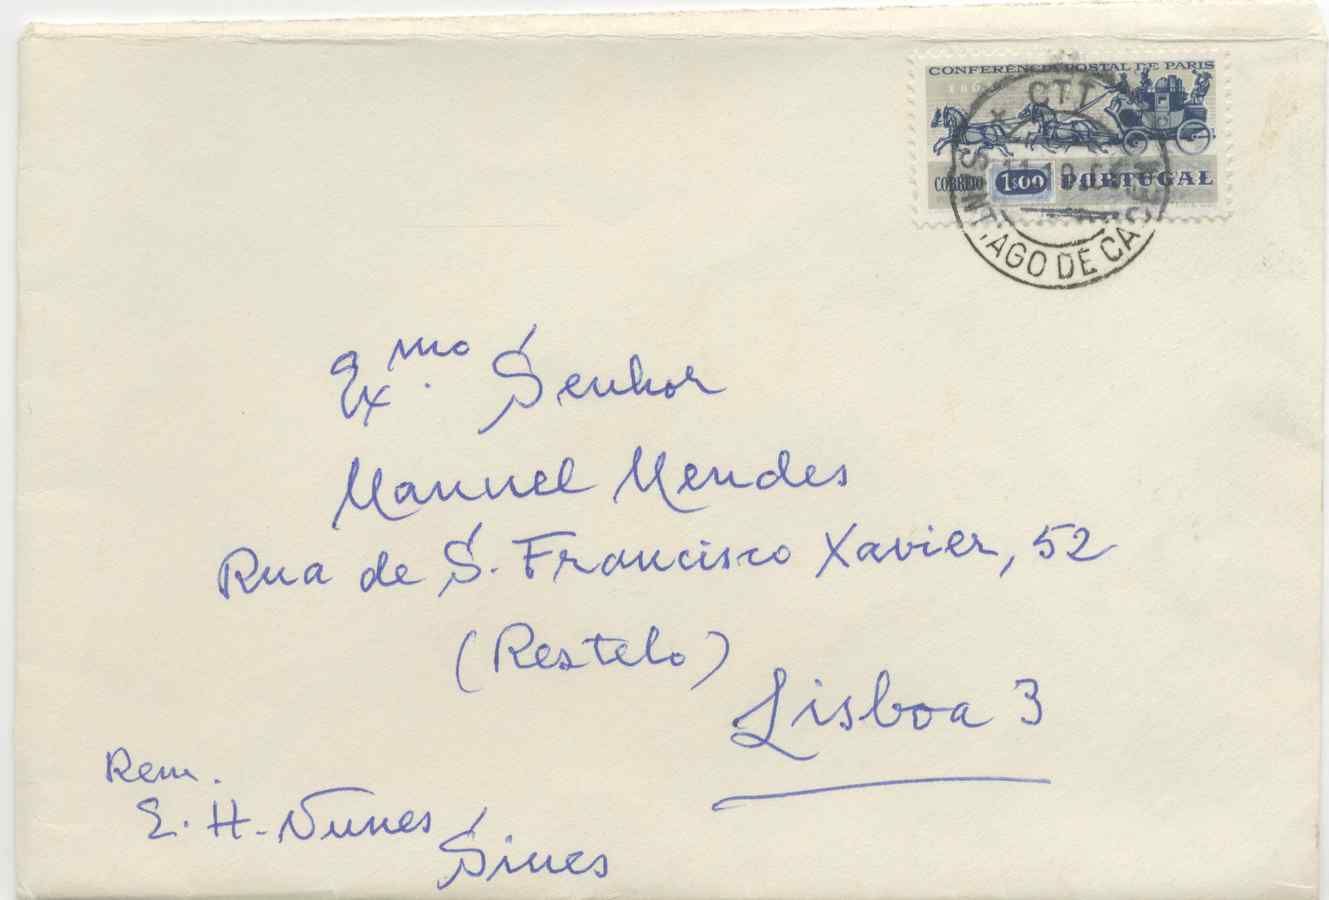 CONFERÊNCIA POSTAL DE PARIS
CTT
CORREIO 1$00 PORTUGAL
SANTIAGO DE CACÉM
Exmo. Senhor
Manuel Mendes
Rua de S. Francisco Xavier, 52
(Restelo)
Lisboa 3
Rem.
E. H. Nunes
Sines